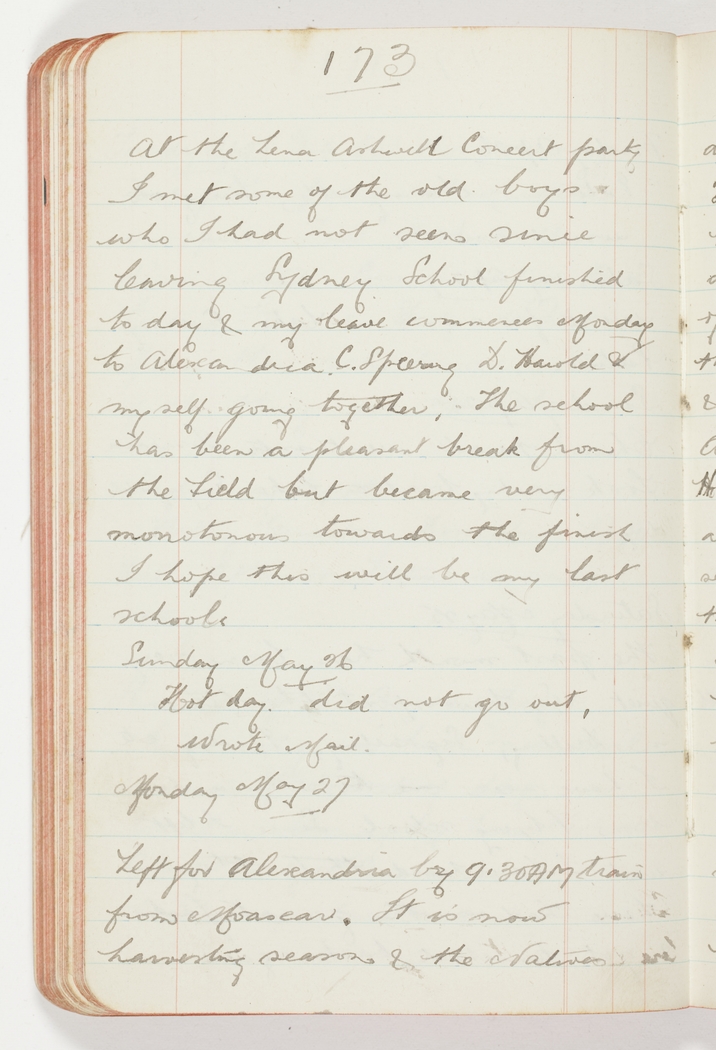 173
At the Lena Ashwell Concert party
I met some of the old boys
who I had not seen since
leaving Sydney School finished
to day & my leave commences Monday
to Alexandria C. Speering D. Harold &
myself going together, The school
has been a pleasant break from
the field but became very
monotonous towards the finish
I hope this will be my last
school
Sunday May 26
Hot day. did not go out,
Wrote Mail.
Monday May 27
Left for Alexandria by 9.30AM train
from Moascar. It is now
harvesting season & the Natives are